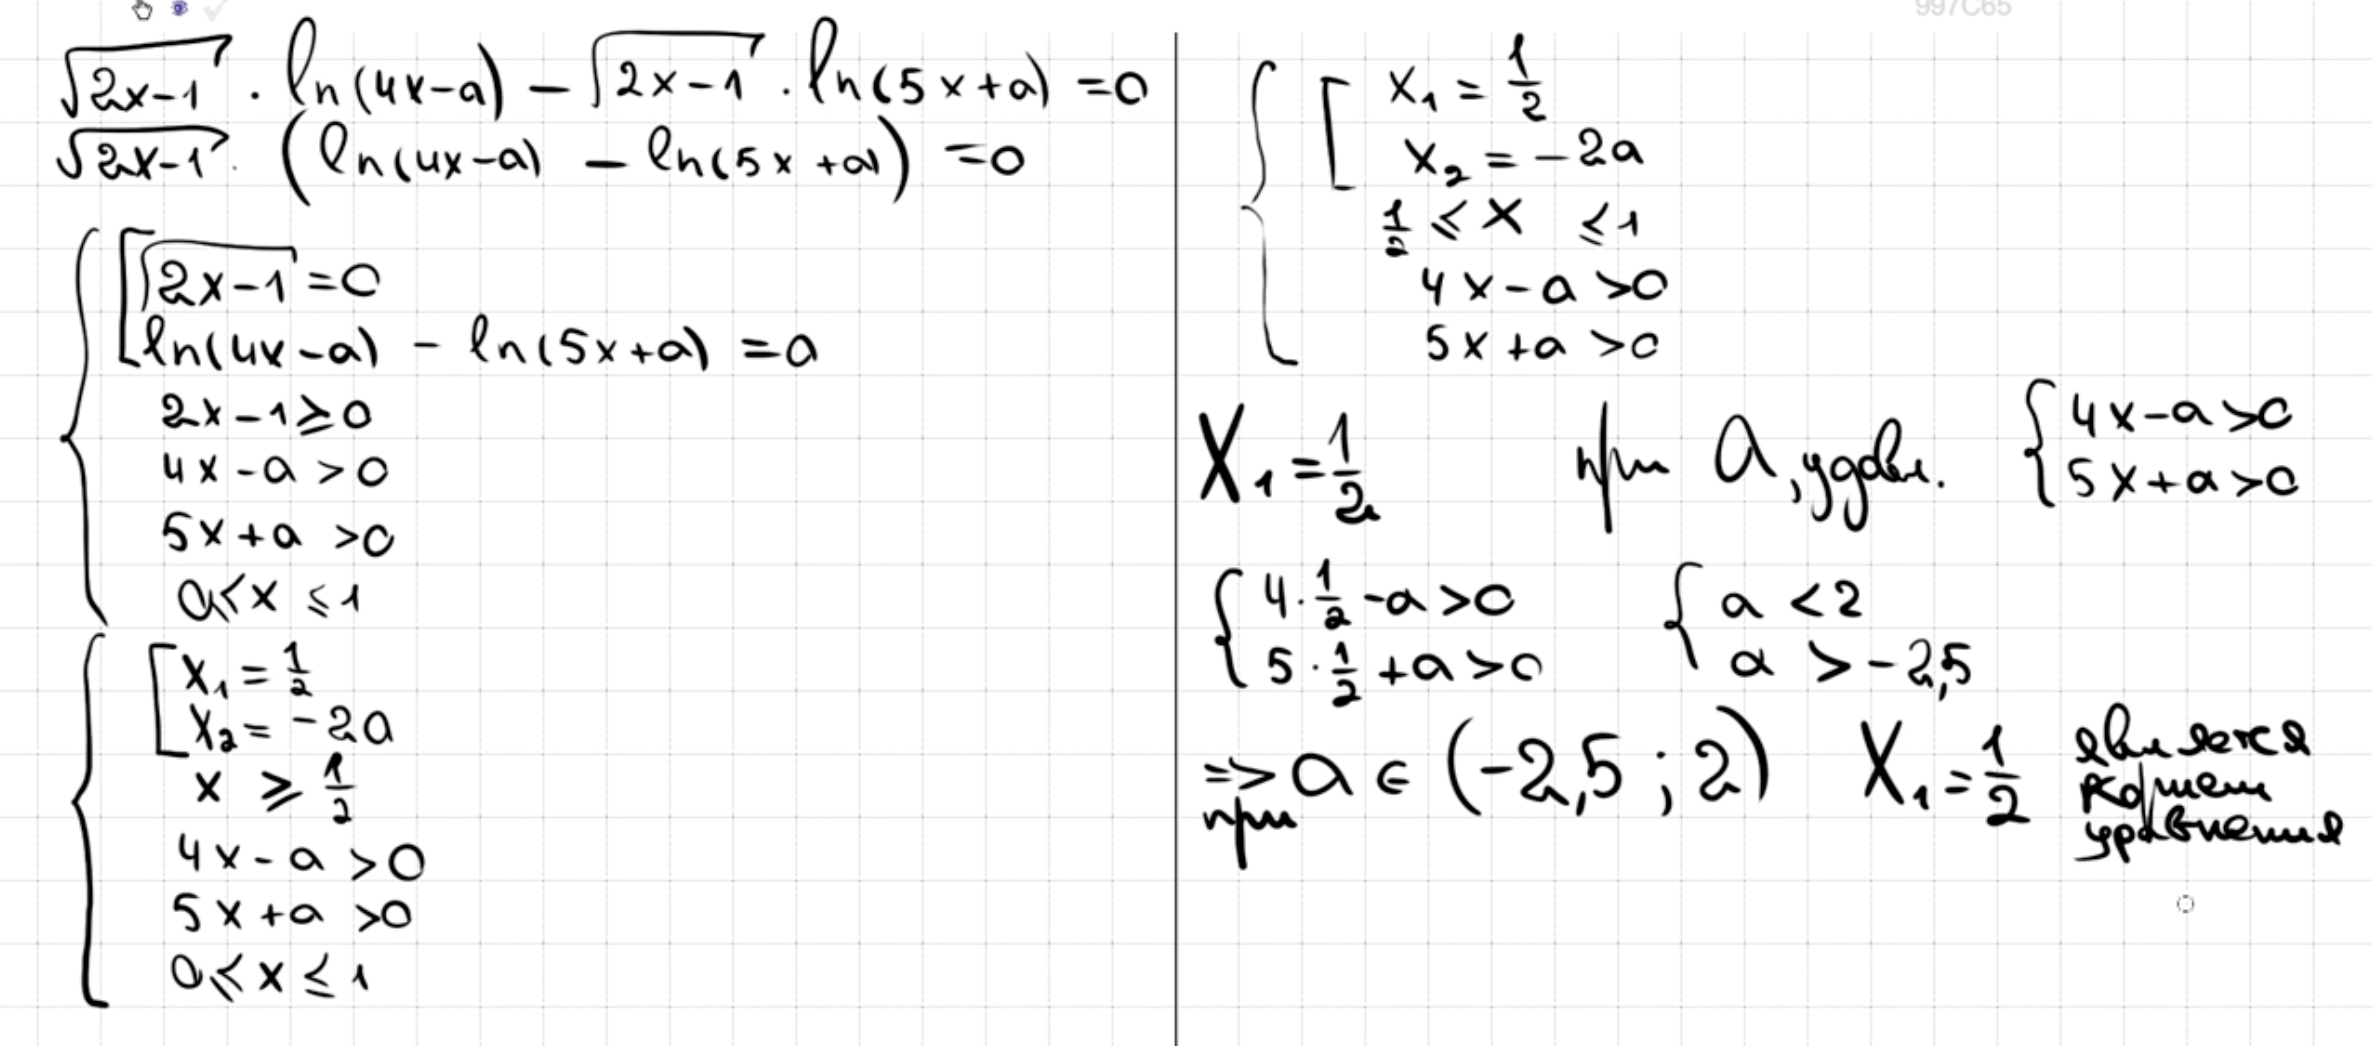 997C65
√(2x-1) · ln(4x-a) - √(2x-1) · ln(5x+a) = 0
√(2x-1) · (ln(4x-a) - ln(5x+a)) = 0
{ [ √(2x-1) = 0
ln(4x-a) - ln(5x+a) = a
2x-1 ≥ 0
4x-a > 0
5x+a > 0
0 ≤ x ≤ 1
{ [ x₁ = 1/2
x₂ = -2a
x ≥ 1/2
4x-a > 0
5x+a > 0
0 ≤ x ≤ 1
{ [ x₁ = 1/2
x₂ = -2a
1/2 ≤ x ≤ 1
4x-a > 0
5x+a > 0
x₁ = 1/2 при a, удовл. { 4x-a > 0
5x+a > 0
{ 4·1/2 - a > 0 { a < 2
5·1/2 + a > 0 a > -2,5
=> при a ∈ (-2,5; 2) x₁ = 1/2 является
корнем
уравнения